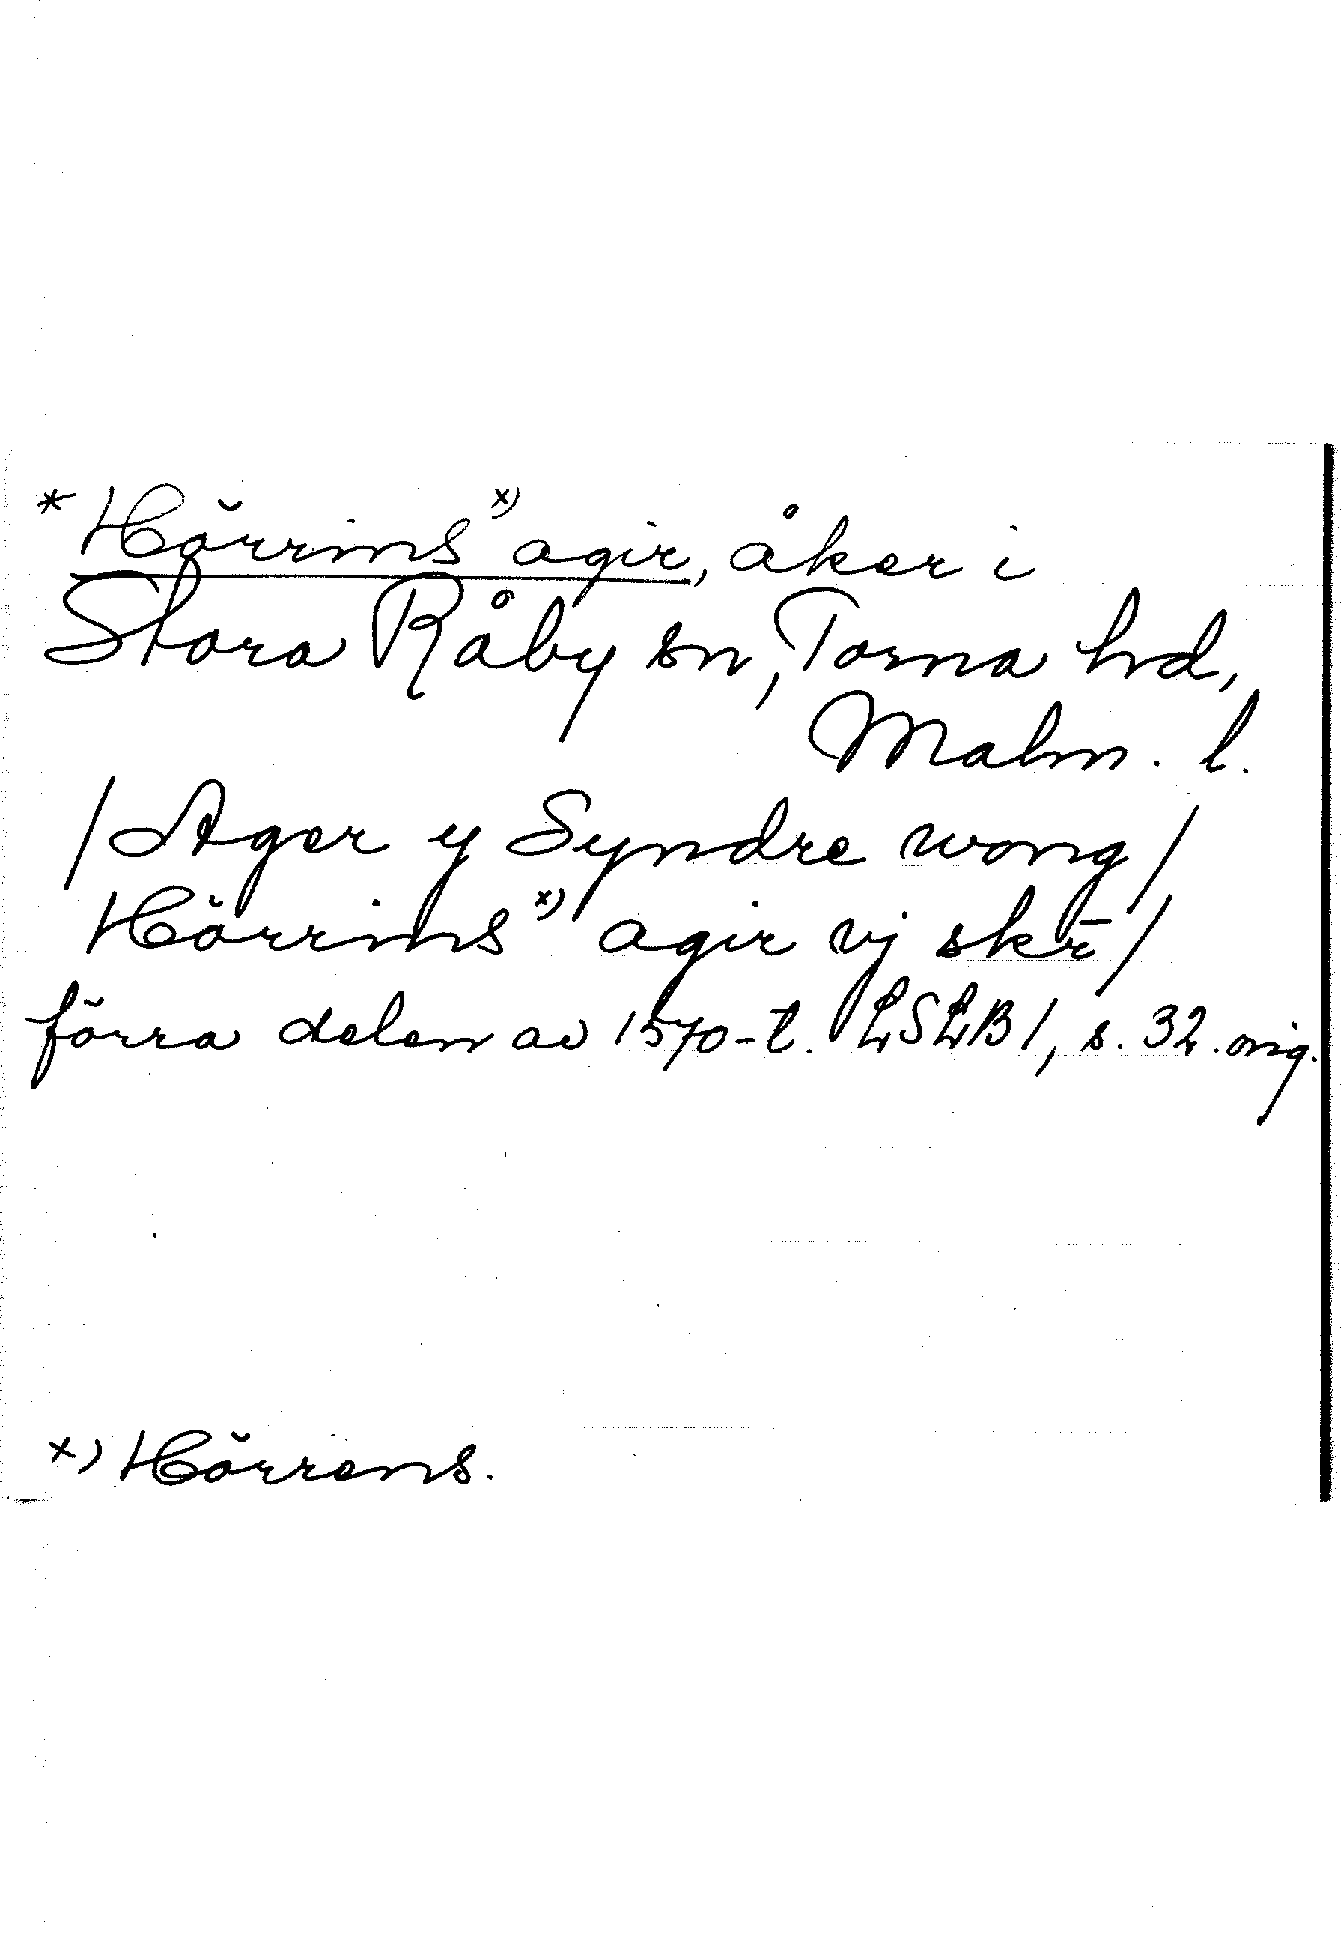 * Hörrins x) agir, åker i
Stora Råby sn, Torna hd,
Malm. l.
/ Ager y Syndre wong /
Hörrins x) agir vj skr̄ /
förra delen av 1570-t. LSLB 1, s. 32. orig.
x) Hörrens.